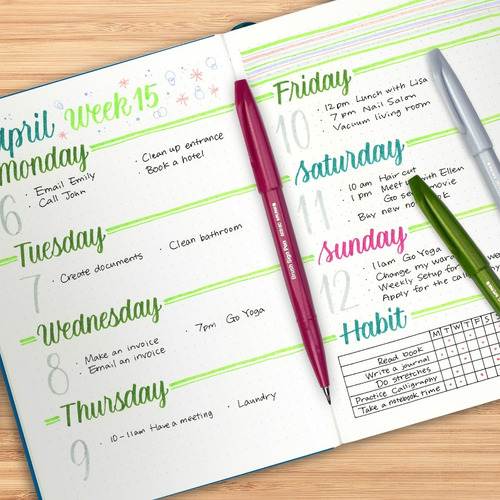 April Week 15
Monday
6
· Email Emily
· Call John
· Clean up entrance
Book a hotel
Tuesday
7
· Create documents
· Clean bathroom
Wednesday
8
· Make an invoice
· Email an invoice
· 7pm Go Yoga
Thursday
9
· 10-11am Have a meeting
· Laundry
Friday
10
· 12pm Lunch with Lisa
· 7pm Nail Salon
· Vacuum living room
Saturday
11
· 10am Hair cut
· 1pm Meet with Ellen
Go see movie
· Buy new no
Sunday
12
· 11am Go Yoga
· Change my
· Weekly Setup for
· Apply for the
Habit
M T W T F S
Read book
Write a journal
Do stretches
Practice Calligraphy
Take a notebook time